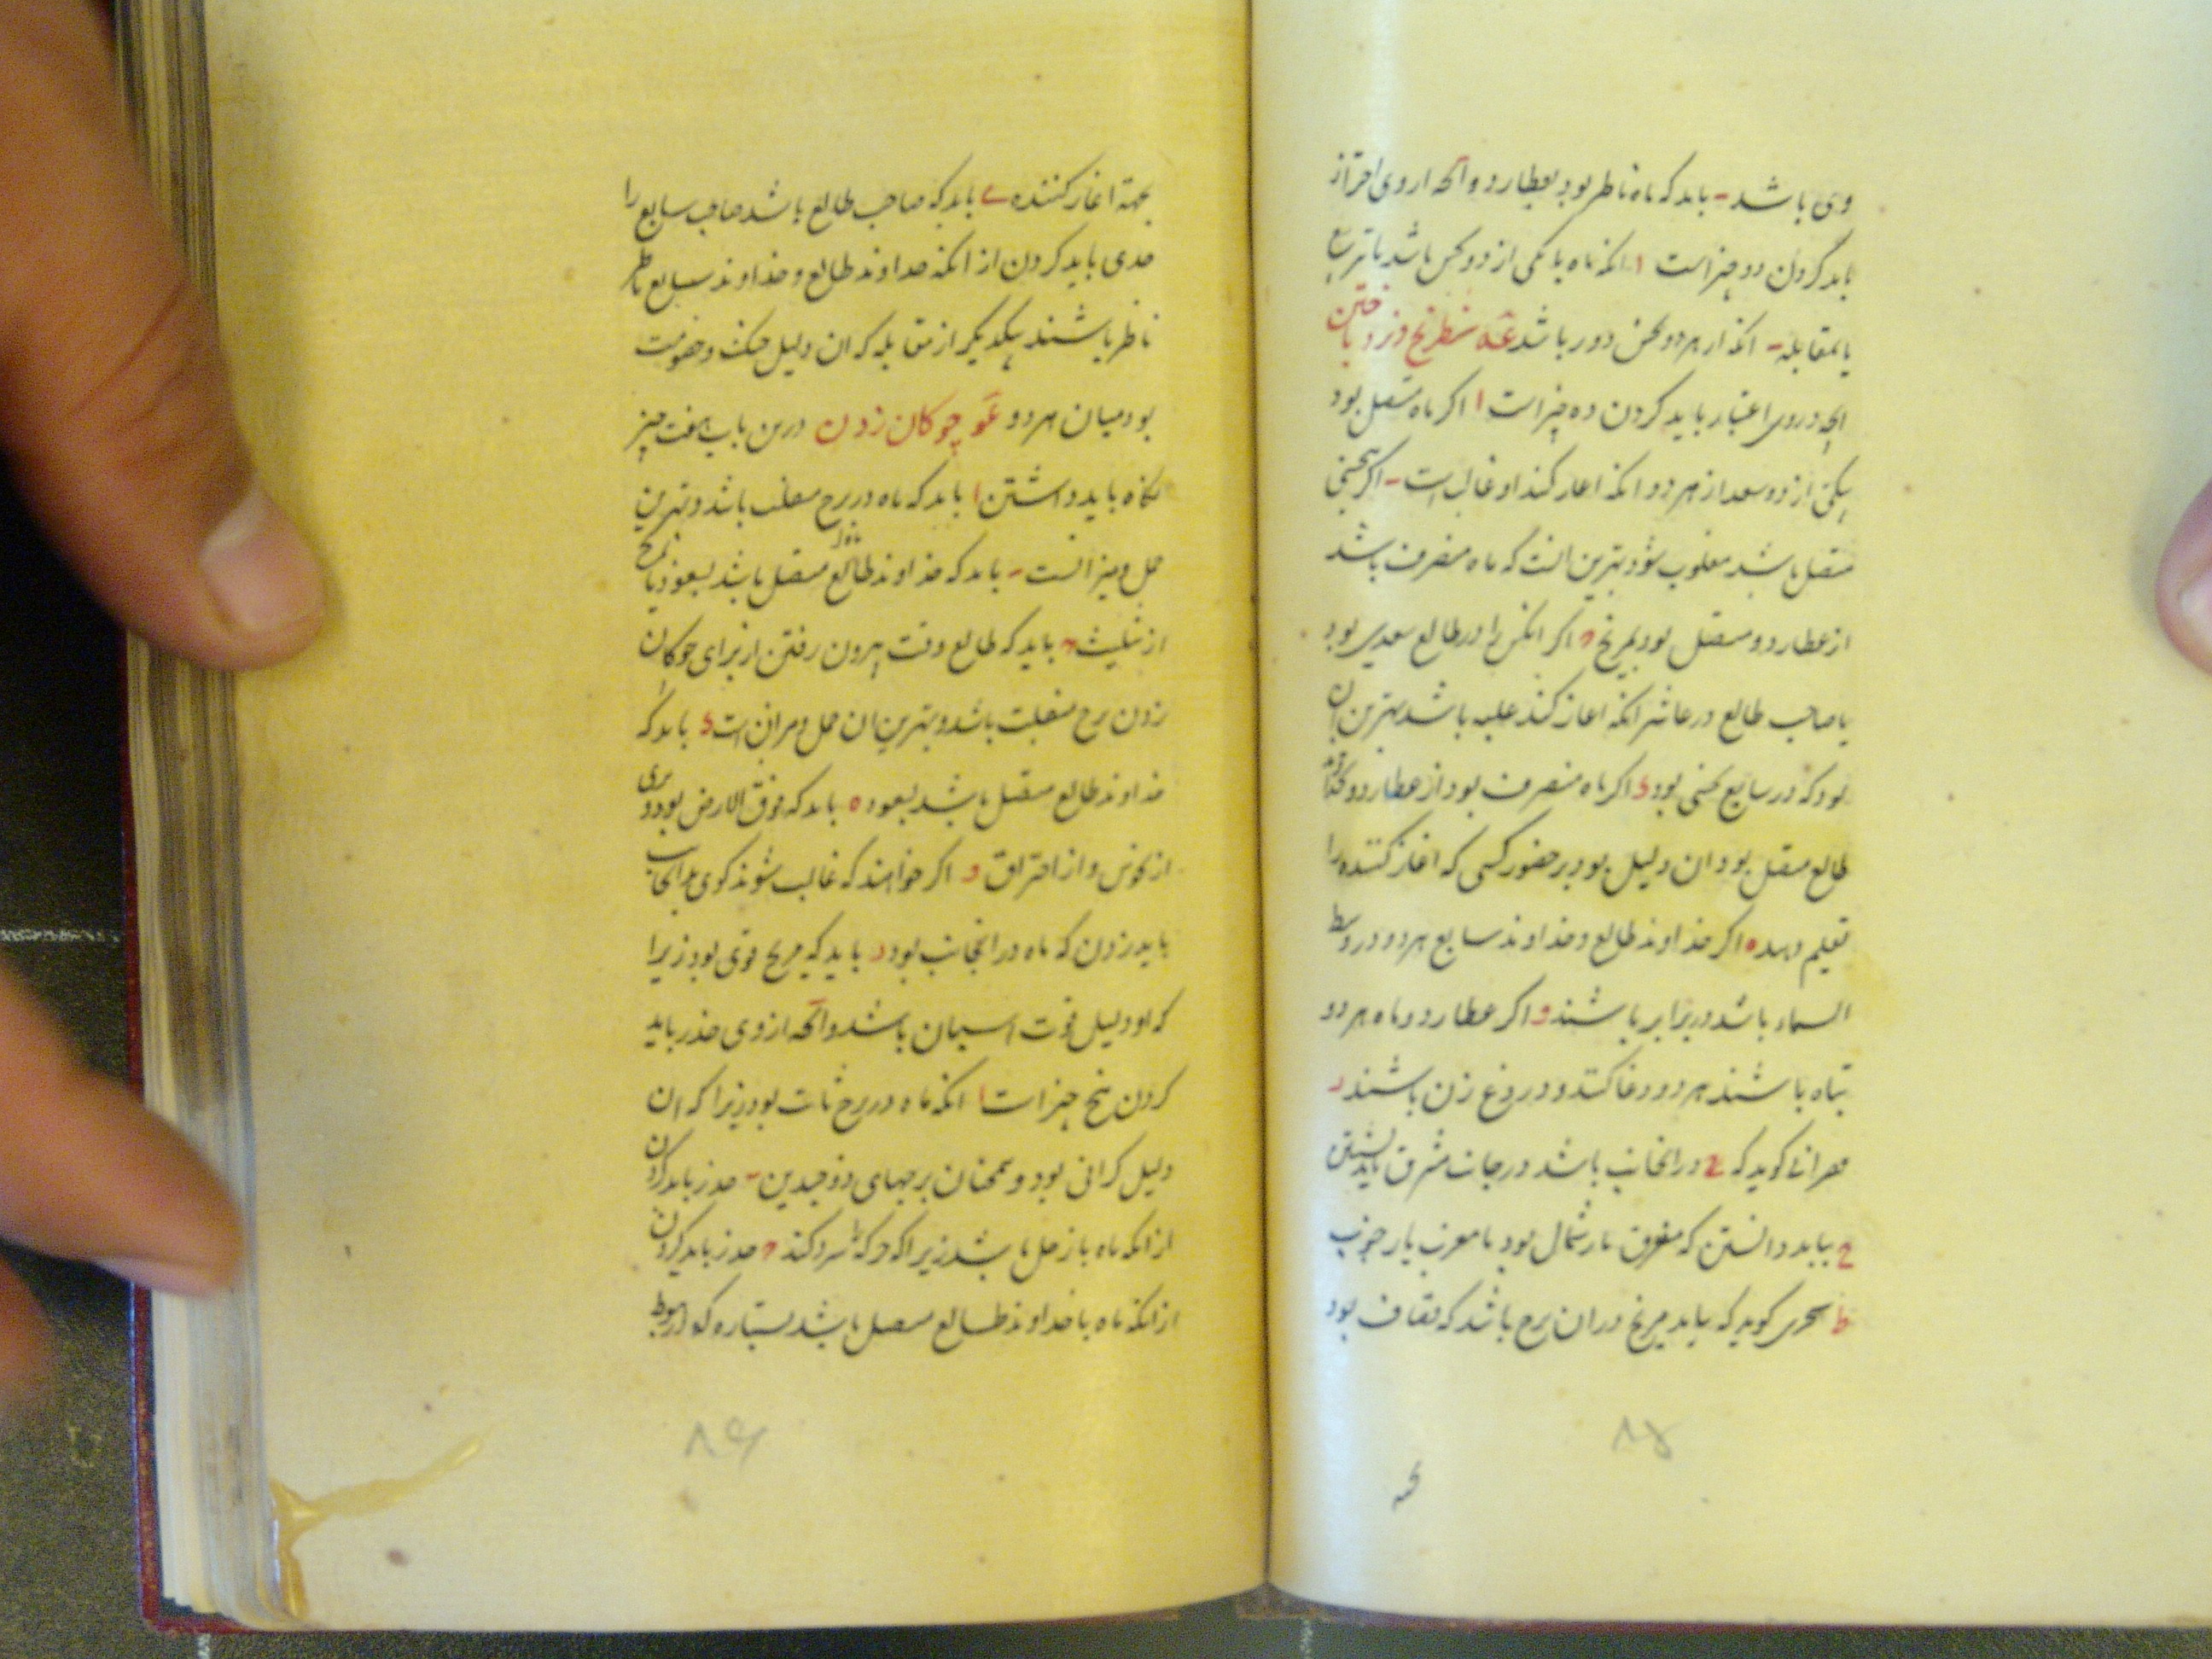 وی باشد ب باید که ماه ناظر بود بعطارد و آنچه از وی احتراز
باید کردن دو چیز است ا آنکه ماه با یکی از دو نحس باشد بتربیع
یا بمقابله ب آنکه از هر دو نحس دور باشد عه شطرنج و نرد باختن
آنچه در وی اعتبار باید کردن ده چیز است ا اگر ماه متصل بود
بیکی از دو سعد از هر دو آنکه آغاز کند او غالب است ب اگر بنحسی
متصل باشد مغلوب شود بهترین آنست که ماه منصرف باشد
از عطارد و متصل بود بمریخ ج اگر آنکس را در طالع سعدی بود
یا صاحب طالع در عاشر آنکه آغاز کند غلبه باشد بهترین آن
بود که در سابع نحسی بود د اگر ماه منصرف بود از عطارد و بخداوند
طالع متصل بود آن دلیل بود بر حضور کسی که آغاز کننده را
تعلیم دهد ه اگر خداوند طالع و خداوند سابع هر دو در وسط
السماء باشد در برابر باشند و اگر عطارد و ماه هر دو
تباه باشند هر دو دغا کنند و دروغ زن باشند ز
گوید که در آنجانب باشد در جانب مشرق باید نشستن
ح بباید دانستن که مشرق یار شمال بود یا مغرب یار جنوب
ط گوید که باید مریخ در آن برج باشد که بود
بجهة آغاز کننده ی باید که صاحب طالع باشد صاحب سابع را
حذر باید کردن از آنکه خداوند طالع و خداوند سابع ناظر
ناظر باشند بیکدیگر از مقابله که آن دلیل جنگ و خصومت
بود میان هر دو عو چوکان زدن درین باب هفت چیز
نگاه باید داشتن ا باید که ماه در برج منقلب باشد و بهترین
حمل و میزانست ب باید که خداوند طالع متصل باشد بسعود یا بمریخ
از تثلیث ج باید که طالع وقت بیرون رفتن از برای چوکان
زدن برج منقلب باشد و بهترین آن حمل و میزان است د باید که
خداوند طالع متصل باشد بسعود ه باید که فوق الارض بود و بری
از نحوس و از احتراق و اگر خواهند که غالب شوند گوی بدانجانب
باید زدن که ماه در آنجانب بود ز باید که مریخ قوی بود زیرا
که او دلیل قوت اسبان باشد و آنچه از وی حذر باید
کردن پنج چیز است ا آنکه ماه در برج ثابت بود زیرا که آن
دلیل گرانی بود و همچنان برجهای ذوجسدین ب حذر باید کردن
از آنکه ماه با زحل باشد زیرا که حرکت سرد کند ج حذر باید کردن
از آنکه ماه با خداوند طالع متصل باشد بستاره که
۸۵
۸۶